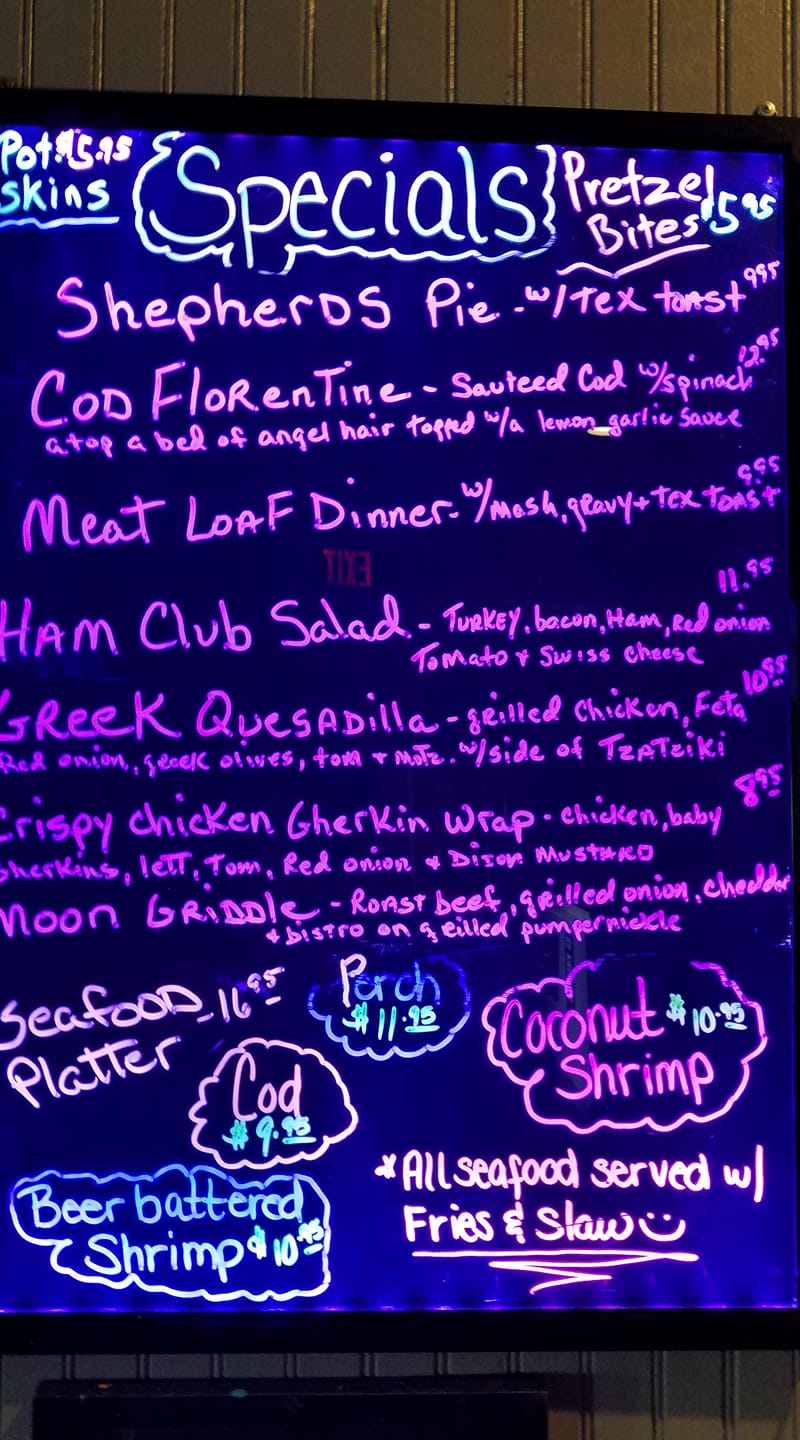 Pot. $5.95
Skins
Specials
Pretzel
Bites $5.95
Shepherds Pie - w/Tex toast 9.95
Cod Florentine - Sauteed Cod w/spinach 12.95
atop a bed of angel hair topped w/a lemon garlic sauce
Meat Loaf Dinner - w/mash, gravy + Tex Toast 9.95
EXIT
Ham Club Salad - Turkey, bacon, Ham, Red onion 11.95
Tomato + Swiss cheese
Greek Quesadilla - grilled chicken, Feta 10.95
Red onion, greek olives, tom + motz. w/side of Tzatziki
Crispy chicken Gherkin Wrap - chicken, baby 8.95
Gherkins, lett, Tom, Red onion + Dijon Mustard
Moon Griddle - Roast beef, grilled onion, cheddar
+ bistro on grilled pumpernickle
Seafood - 16.95
Platter
Perch
$11.95
Coconut $10.95
Shrimp
Cod
$9.95
Beer battered
Shrimp $10.95
*All seafood served w/
Fries & Slaw